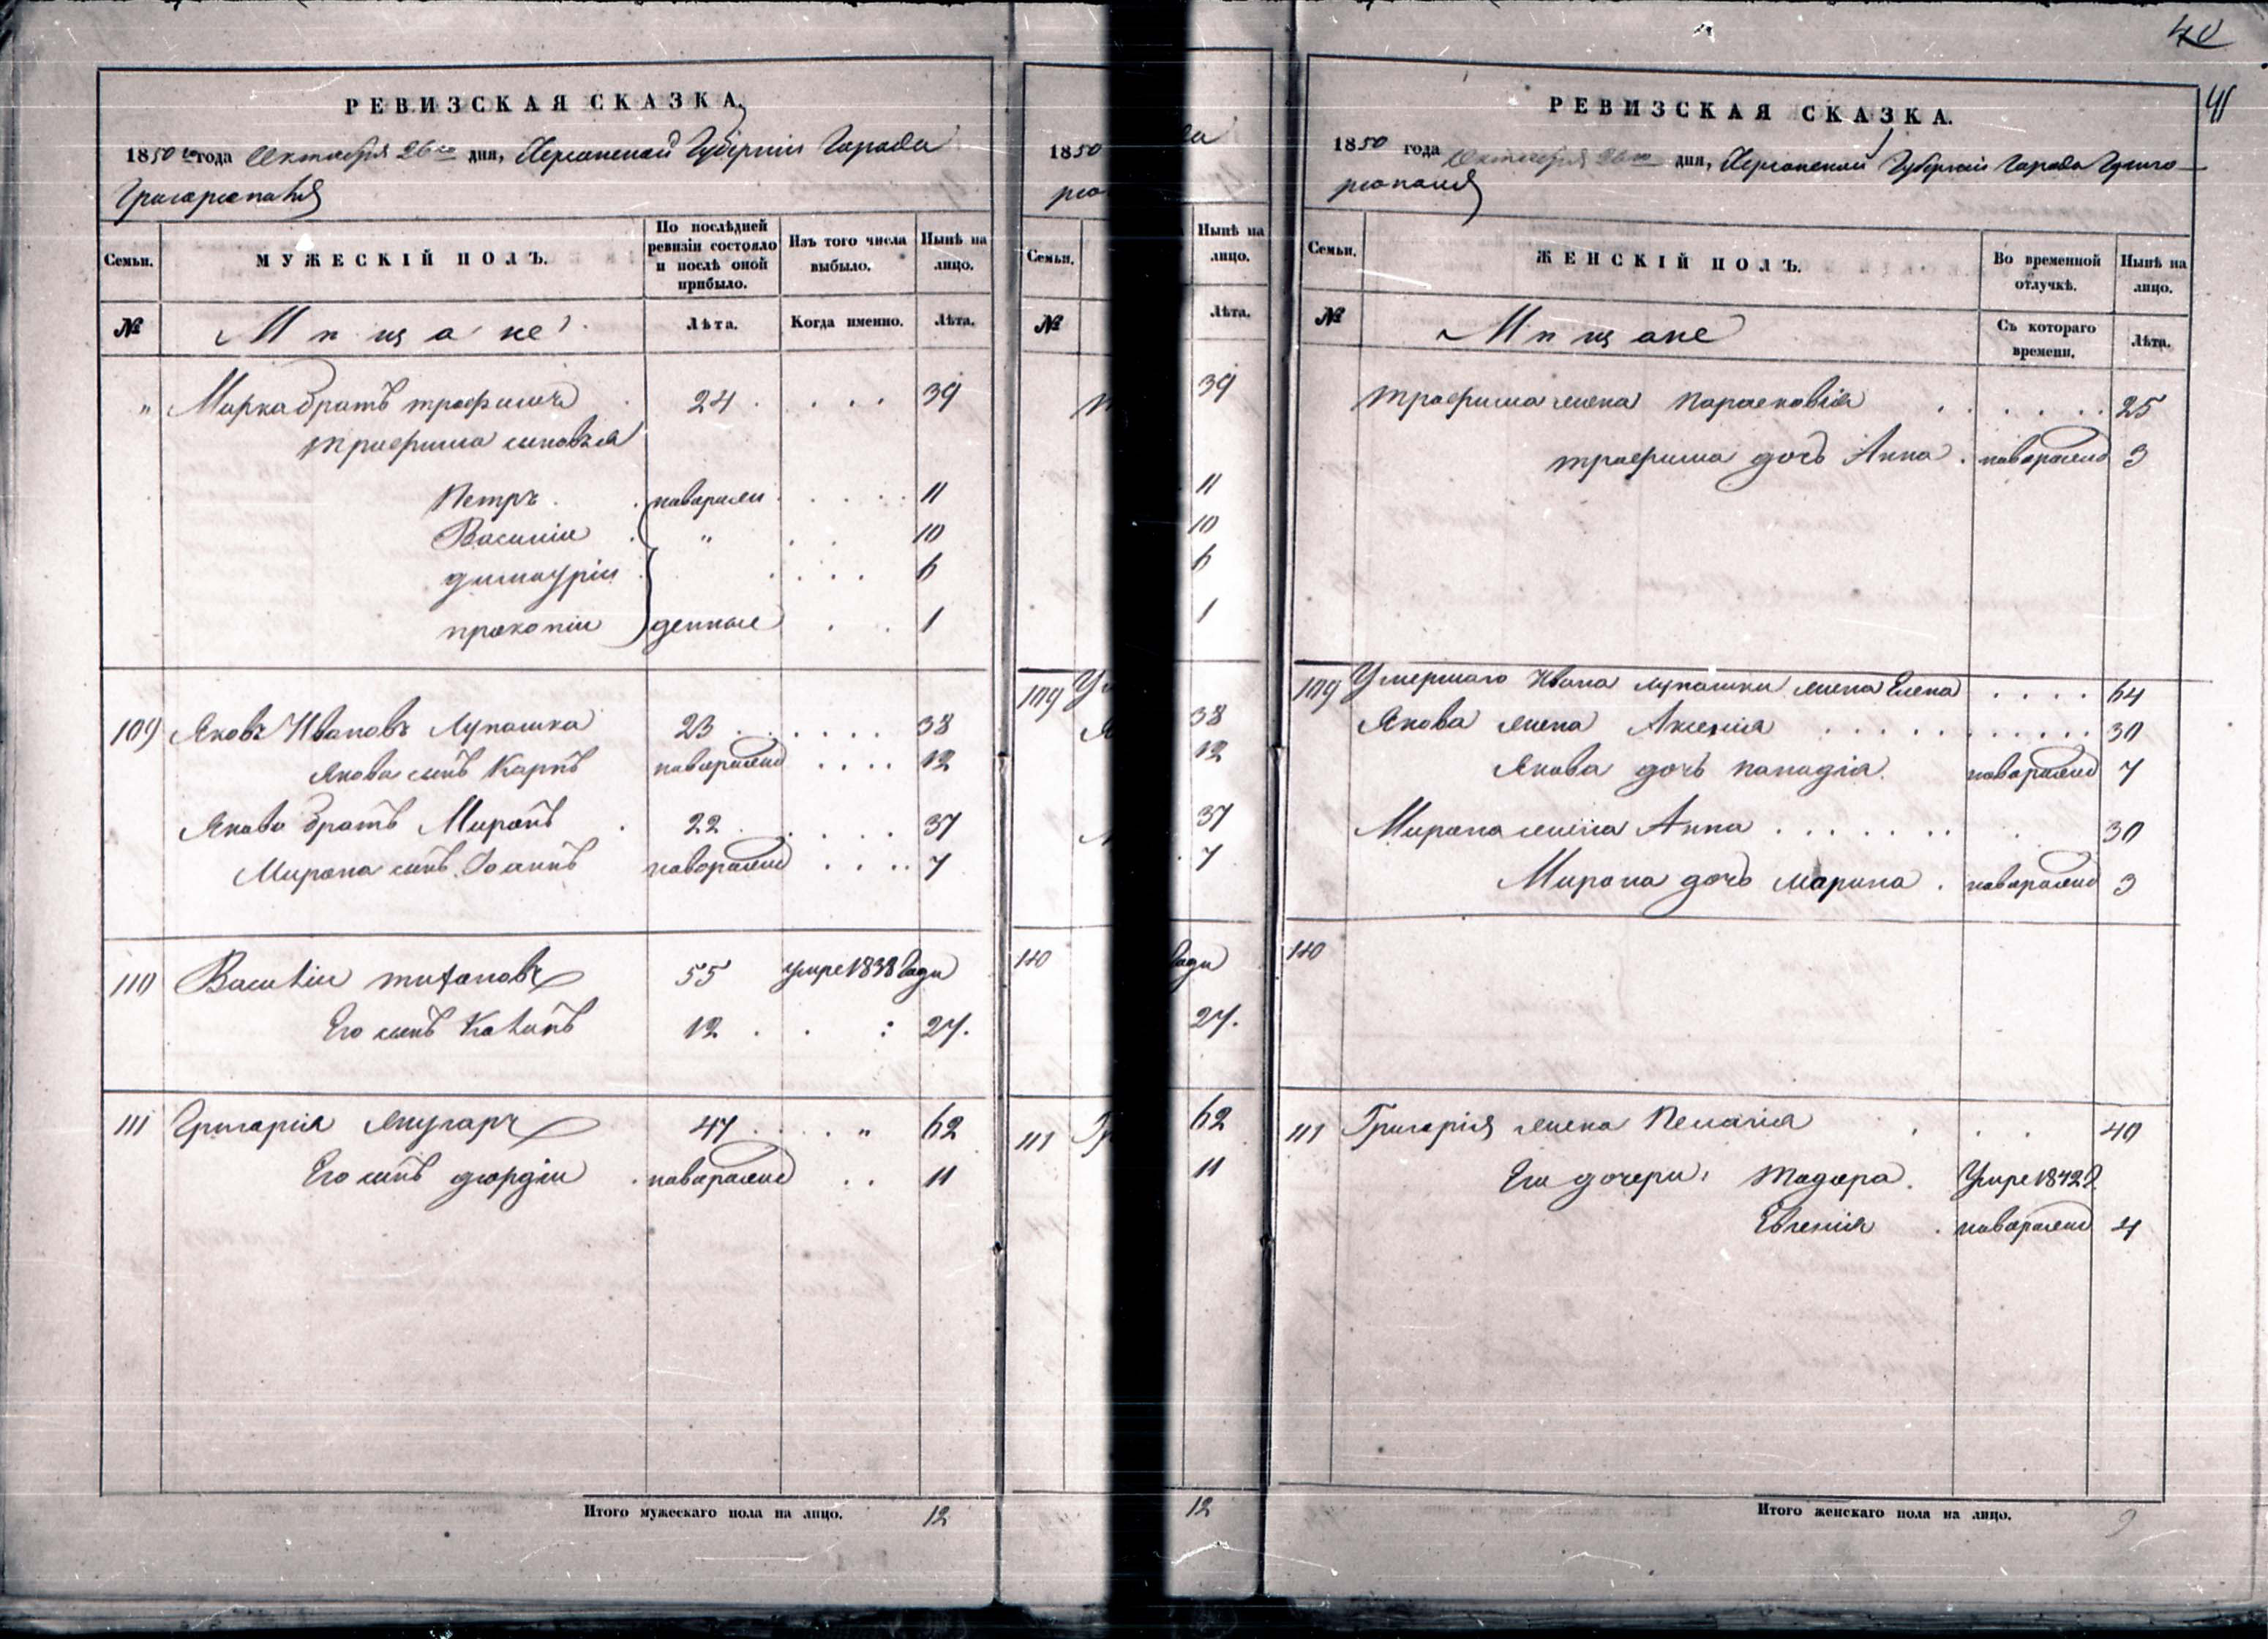 РЕВИЗСКАЯ СКАЗКА,
1850 го года Октября 26го дня, Херсонской Губерніи Города
Григоріополя
Семьи.
МУЖЕСКІЙ ПОЛЪ.
По послѣдней ревизіи состояло и послѣ оной прибыло.
Изъ того числа выбыло.
Нынѣ на лицо.
№
Мѣщане
Лѣта.
Когда именно.
Лѣта.
" Марка братъ трофимъ 24 . . . . 39
трофима сыновья
Петръ . . новорожденные . . . . 11
Василіи " . . 10
димитріи . . . . 6
прокопіи . . 1
109 Яковъ Ивановъ Лупашка 23 . . . . . . 38
Якова сынъ Карпъ новорожено . . . . 12
Якова братъ Миронъ . 22 . . . . . 37
Мирона сынъ Іоаннъ новорожено . . . . 7
110 Василіи 55 умре 1838 Года
Его сынъ 12 . . : 27.
111 Григорія 47 . . . " 62
Его сынъ гіоргіи . новорожено . . 11
Итого мужескаго пола на лицо. 12
1850 да
ріо
Семьи.
Нынѣ на лицо.
№
Лѣта.
39
11
10
6
1
109 Ум
38
12
37
7
110 Года
27.
111 Гр 62
11
12
40
41
РЕВИЗСКАЯ СКАЗКА.
1850 года Октября 26го дня, Херсонской Губерніи Города Григо-
ріополя
Семьи.
ЖЕНСКІЙ ПОЛЪ.
Во временной отлучкѣ.
Нынѣ на лицо.
№
Мѣщане
Съ котораго времени.
Лѣта.
трофима жена Парасковія . . . . . . 25
трофима дочь Анна . новорожено 3
109 Умершаго Ивана лупашки жена Елена . . . . 64
Якова жена Аксенія . . . . . . . . . . . 30
Якова дочь . новорожено 7
Мирона жена Анна . . . . . . . . 30
Мирона дочь Марина . новорожено 3
110
111 Григорія жена Пелагія . . . 40
Его дочери: Тадора . Умре 1842 г.
Евгенія . новорожено 4
Итого женскаго пола на лицо. 9